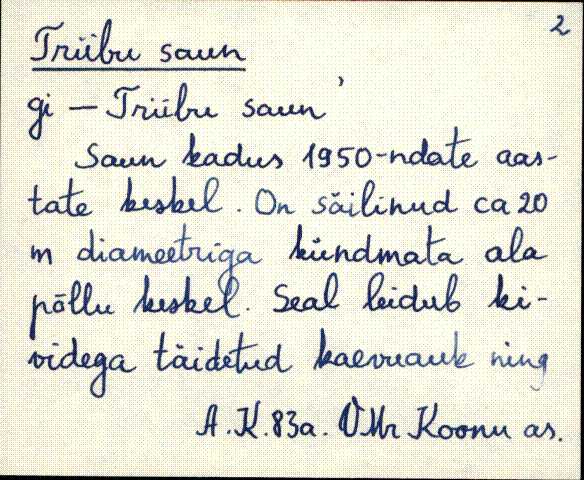 2
Triibu saun
gi — Triibu saun'
Saun kadus 1950-ndate aas-
tate keskel. On säilinud ca 20
m diameetriga kündmata ala
põllu keskel. Seal leidub ki-
videga täidetud kaevuauk ning
A.K.83a. VMr Koonu as.